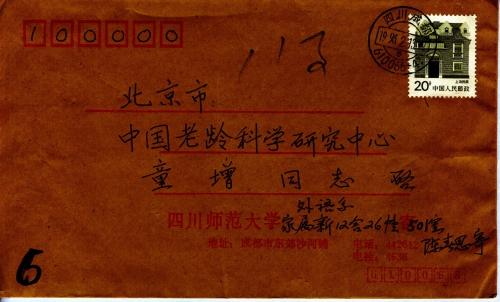 100000
四川成都
20分
上海民居
中国人民邮政
北京市
中国老龄科学研究中心
童增 同志 启
四川师范大学 外语系
家属新12舍26幢 501室
地址：成都市东郊沙河铺
电话：442612
电挂：4636
610068
6